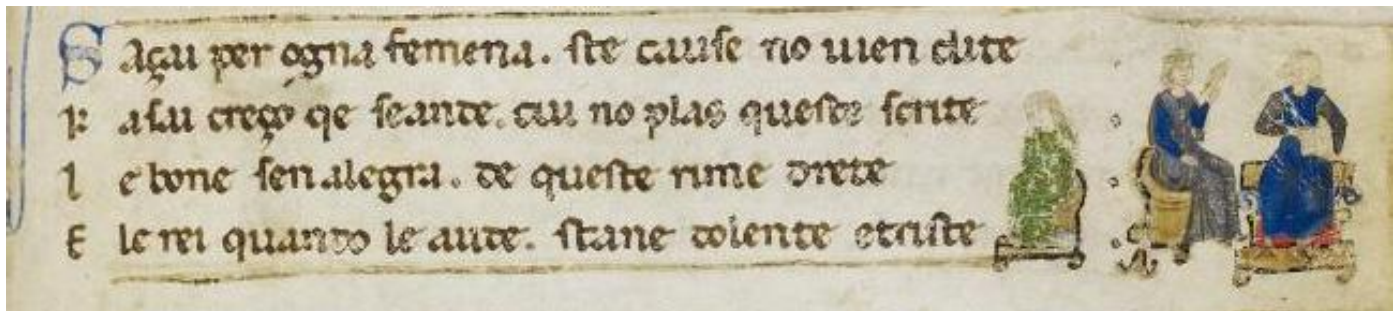 S açai per ogna femena. ste cause no uien dite
K asai creço qe seante. cui no plas queste scrite
L e bone sen alegra. de queste rime drete
E le rei quando le aude. stane dolente etriste